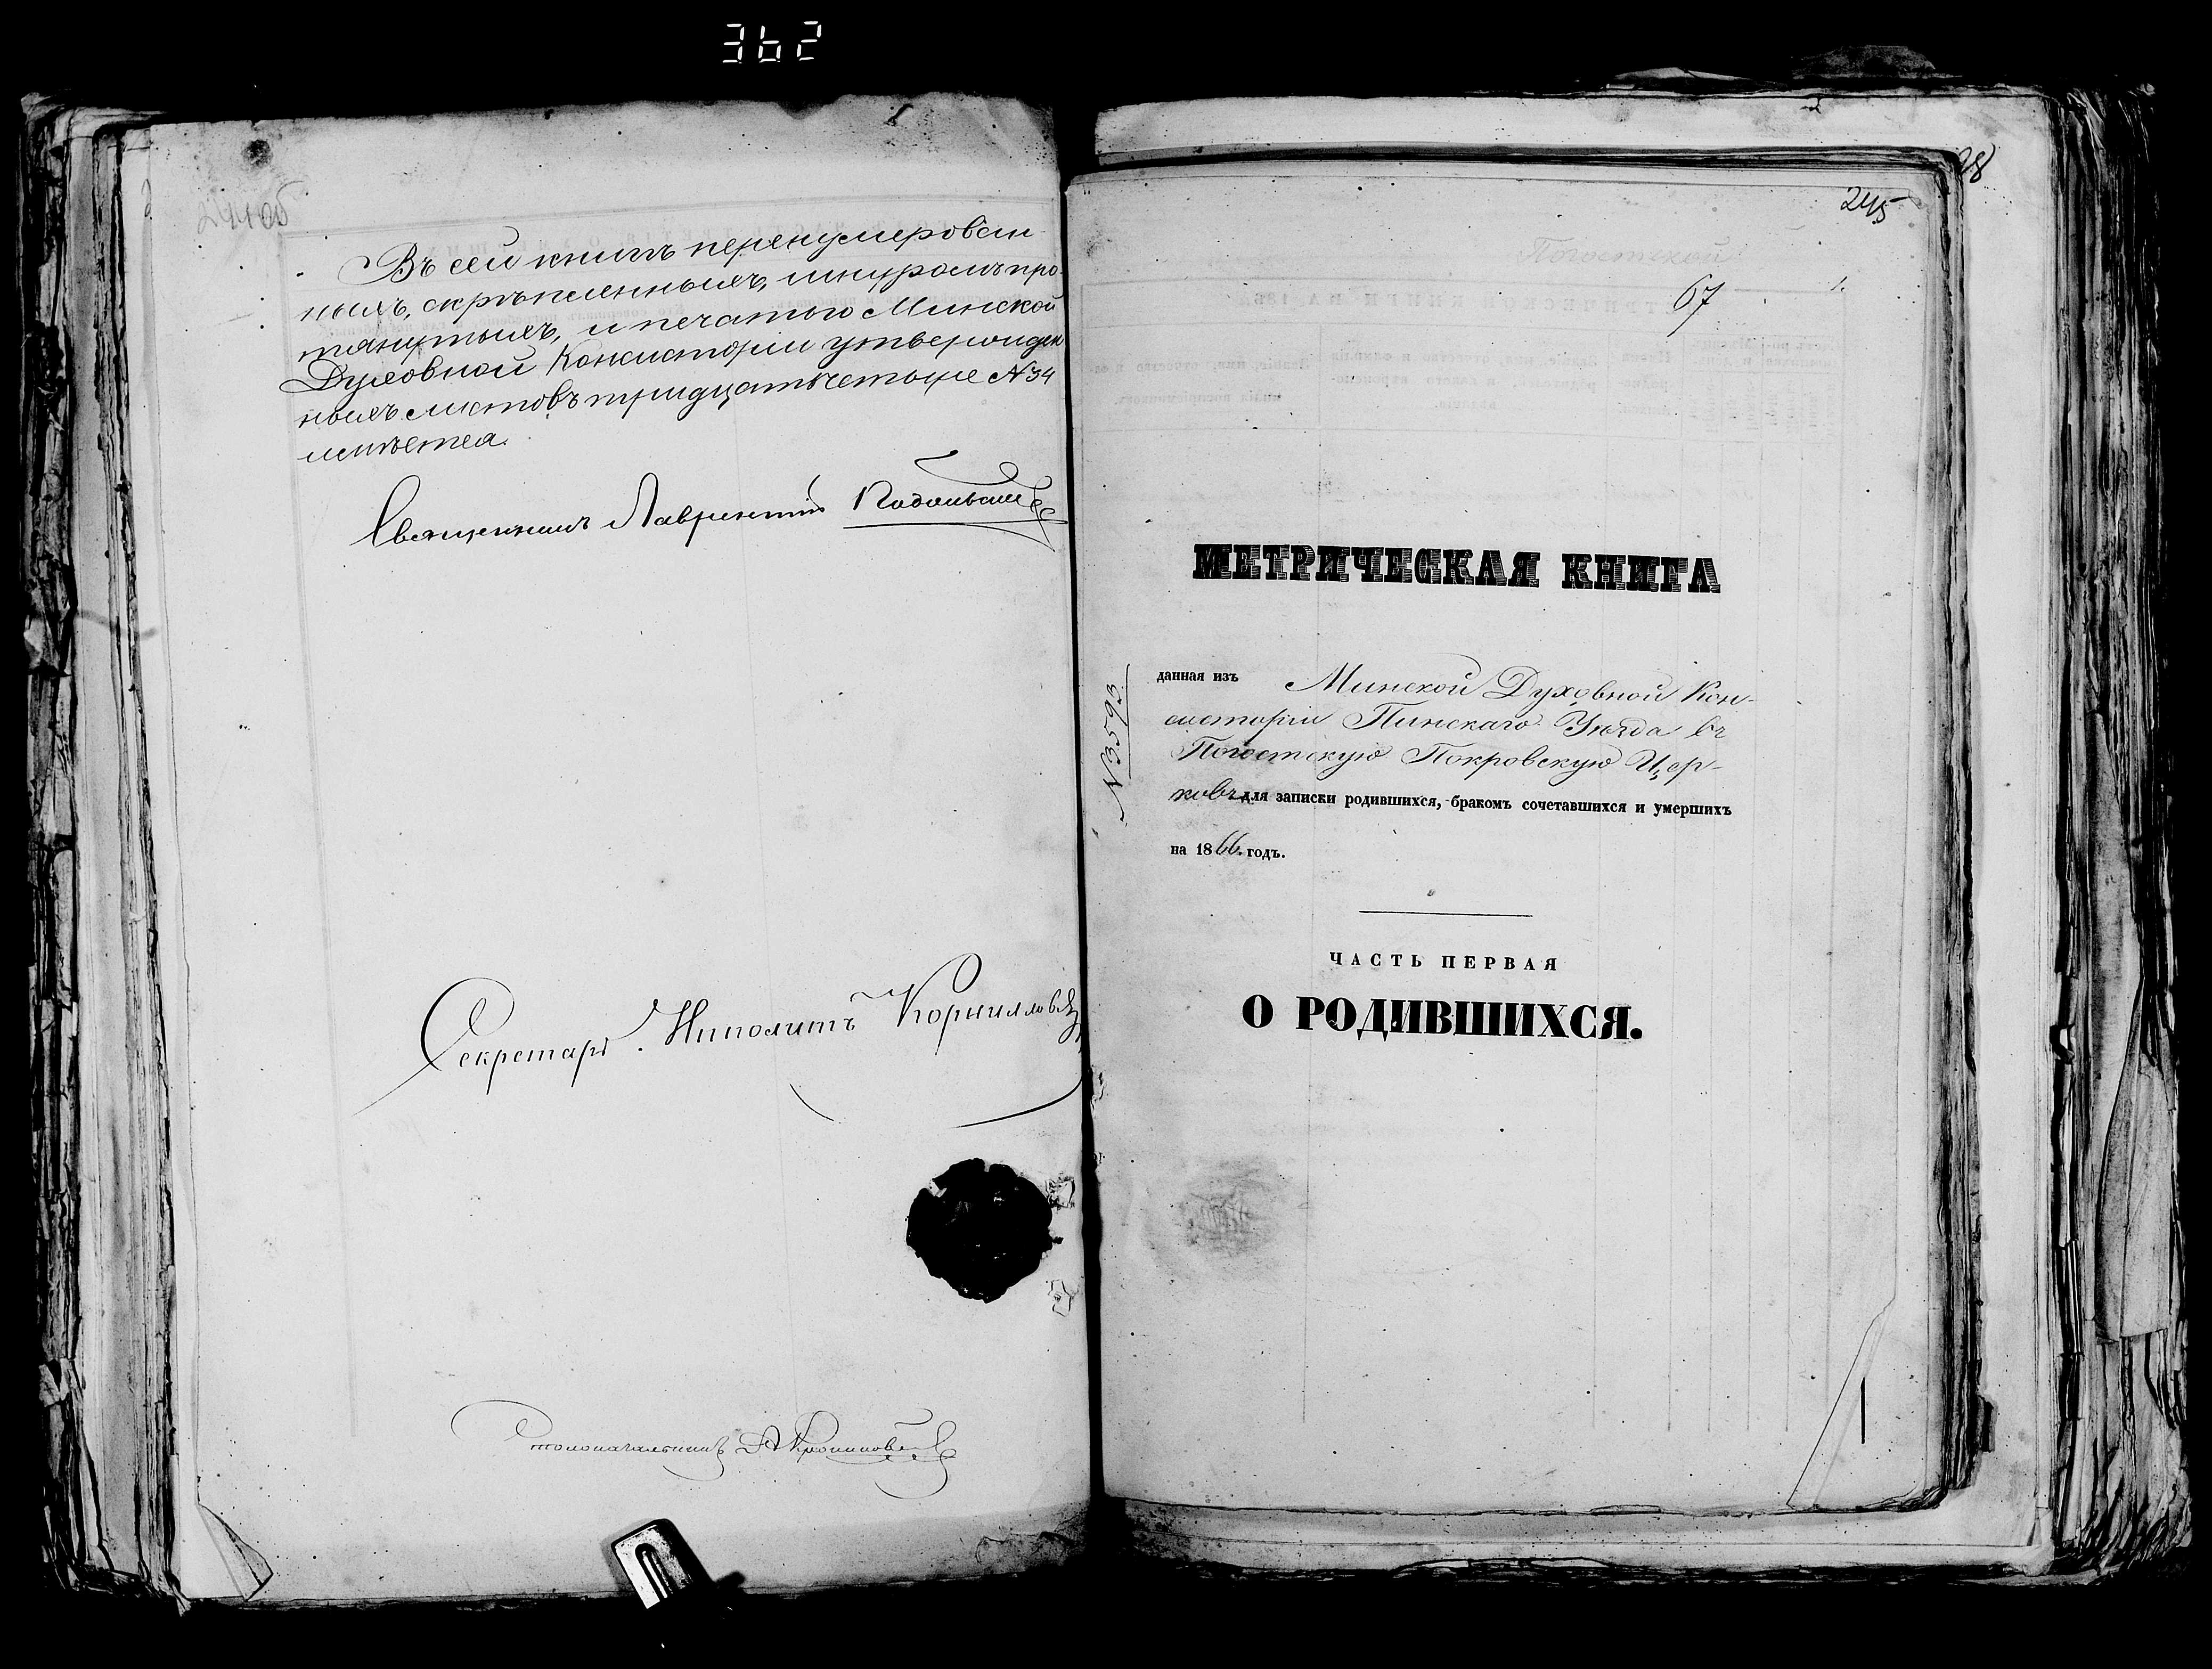 362
244об
Въ сей книгѣ перенумерован-
ныхъ, скрѣпленныхъ, шнуромъ про-
тянутыхъ, и печатью Минской
Духовной Консисторіи утвержден
ныхъ листовъ тридцать четыре № 34
имѣется.
Священникъ Лаврентій
Секретарь Ипполитъ
Столоначальникъ
28
245
Погостской
67
МЕТРИЧЕСКАЯ КНИГА
№ 3593
данная изъ Минской Духовной Кон-
систоріи Пинскаго Уѣзда въ
Погостскую Покровскую Цер-
ковь для записки родившихся, бракомъ сочетавшихся и умершихъ
на 1866 годъ.
ЧАСТЬ ПЕРВАЯ
О РОДИВШИХСЯ.